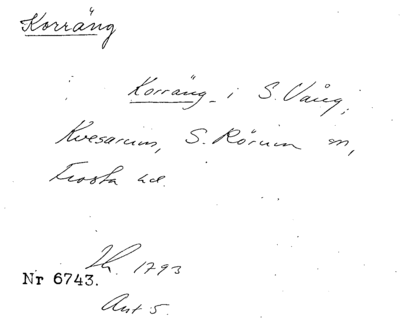 Korräng
Korräng i S. Vång,
Kvesarum, S. Rörum sn,
Frosta hd.
Lh. 1793
Nr 6743.
Akt 5.